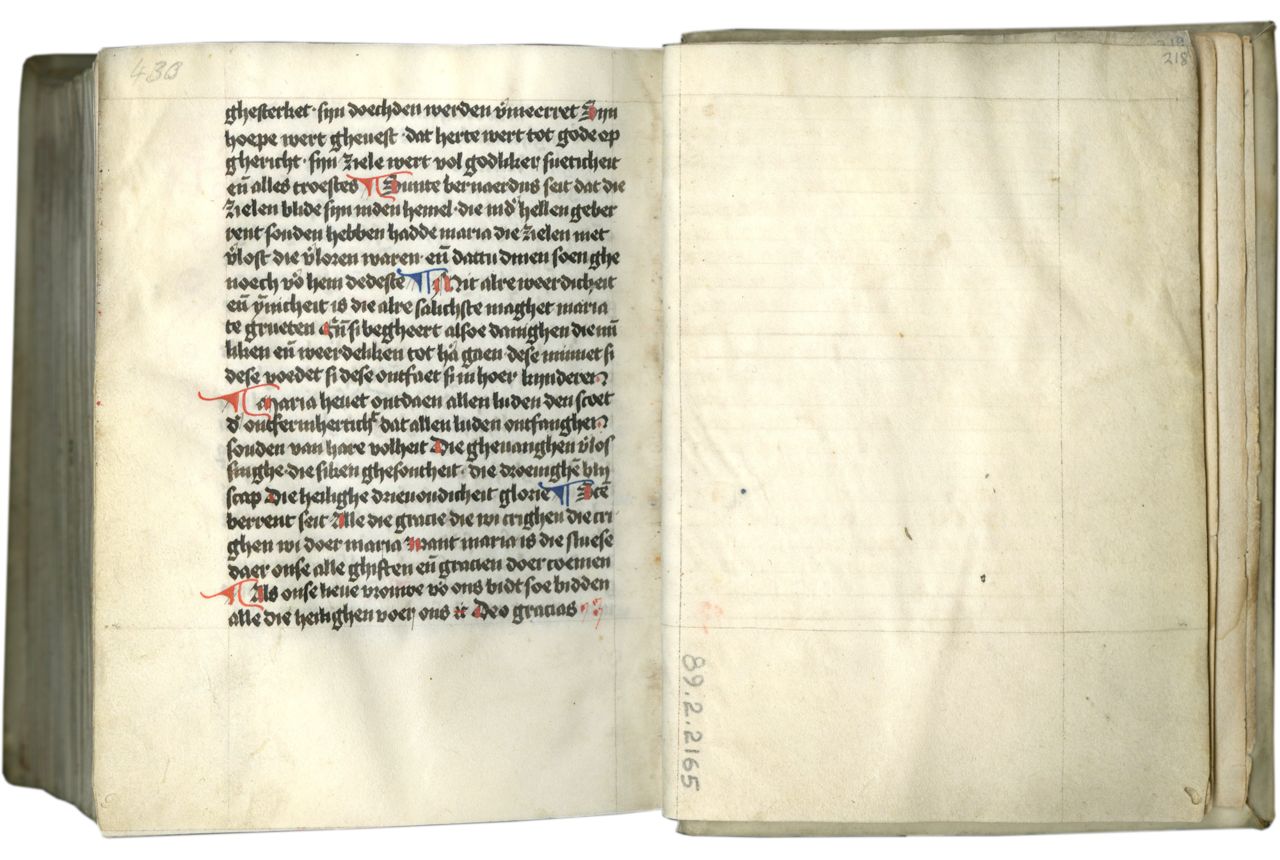 433
ghesterket · sijn doechden werden v̄meerret Sijn
hoepe wert gheuest · dat herte wert tot gode op
ghericht · sijn ziele wert vol godliker sueticheit
eñ alles troestes ¶ Sunte bernaerdus seit dat die
zielen blide sijn inden hemel · die ind' hellen geber
rent souden hebben hadde maria die zielen niet
v̄lost die v̄loren waren · eñ dattu dinen soen ghe
noech vō hem dedeste ¶ Mit alre weerdicheit
eñ ȳnicheit is die alre salichste maghet maria
te grueten Eñ si begheert alsoe danighen die mī
liken eñ weerdeliken tot hā gaen · dese minnet si
dese voedet si dese ontfaet si in hoer kijnderen
¶ Maria heuet ontdaen allen luden den scoet
d' ontfermherticht dat allen luden ontfanghen
souden van hare volheit Die gheuanghen v̄los
singhe · die siken ghesontheit · die droeuighē blij
scap Die heilighe drieuoudicheit glorie ¶ Scē
berrent seit Alle die gracie die wi crighen die cri
ghen wi doer maria want maria is die sluese
daer onse alle ghiften eñ gracien doer coemen
¶ Als onse lieue vrouwe vō ons bidt soe bidden
alle die heilighen voer ons ꝛc Deo gracias
218
89.2.2165